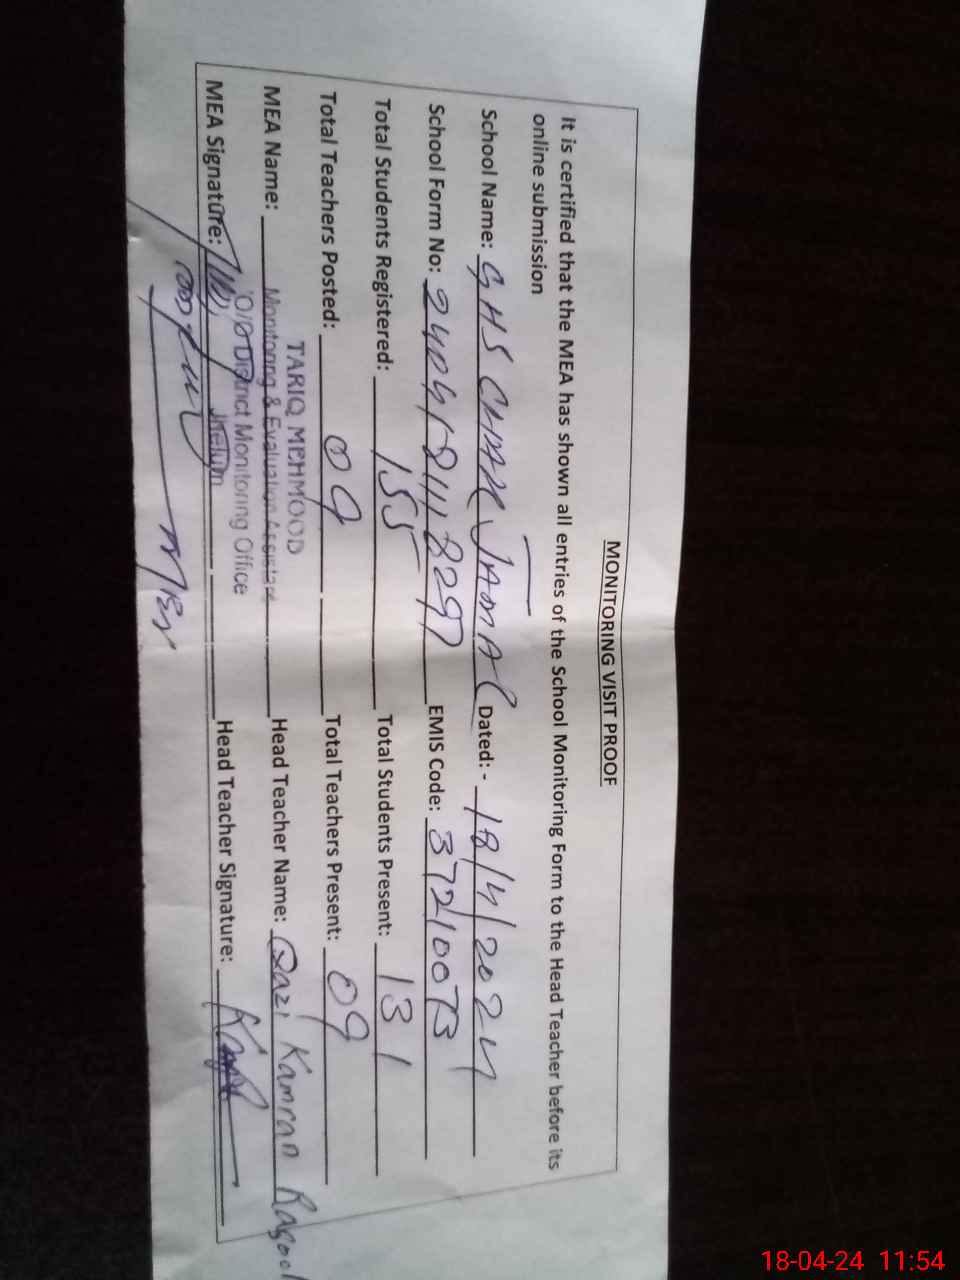 MONITORING VISIT PROOF
It is certified that the MEA has shown all entries of the School Monitoring Form to the Head Teacher before its
online submission
School Name: GHS CHAK JAMAL Dated: - 18/4/2024
School Form No: EMIS Code: 37210073
Total Students Registered: 155 Total Students Present: 131
Total Teachers Posted: 09 Total Teachers Present: 09
TARIQ MEHMOOD
MEA Name: Monitoring & Evaluation Assistant Head Teacher Name: Qazi Kamran Rasool
O/O District Monitoring Office
MEA Signature: Jhelum Head Teacher Signature:
18-04-24 11:54